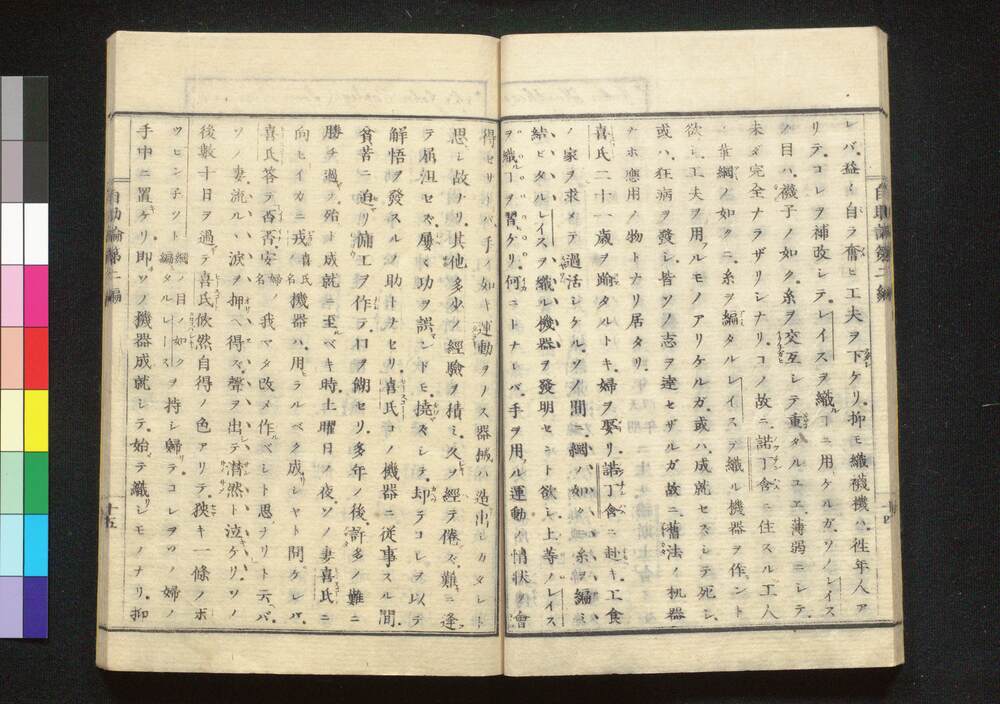 レバ、益〻自ラ奮ヒ工夫ヲ下ケリ、抑モ織襪機ハ、徃年人ア
リテ、コレヲ補改シテ、レイスヲ織コニ用ケルガ、ソノレイス
ノ目ハ、襪子ノ如ク、糸ヲ交互シテ重タルユエ、薄弱ニシテ、
未ダ完全ナラザリシナリ、コノ故ニ、諾丁含ニ住スル工人
華綱ノ如クニ、糸ヲ編タルレイステ織ル機器ヲ作ント
欲シ、工夫ヲフルモノアリケルガ、或ハ成就セスシテ死シ、
或ハ、狂病ヲ發シ、皆ソノ志ヲ達セザルガ故ニ、舊法ノ机器
ナホ應用ノ物トナリ居タリ、
喜氏二十一歳ヲ踰タルトキ、婦ヲ娶リ、諾丁含ニ赴キ、工食
ノ家ヲ求メテ過活シケル、ソノ間ニ、綱ノ如ク、糸ヲ編ミ
結ビタルレイスヲ織ル機器ヲ發明セント欲シ、上等ノレイス
ヲ織コヲ習ケリ、何ニトナレバ、手ヲ用ル運動ノ情状ヲ會
得セサレバ、手ノ如キ運動ヲノス器械ハ、造出シカタシト
思シ故ナリ、其他多少ノ經驗ヲ積ミ、久ヲ經テ倦ズ、難ニ逢
テ屈沮セズ、屡〻功ヲ誤ンドモ、撓ズシテ、却テコレヲ以テ
解悟ヲ發スルノ助トナセリ、喜氏コノ機器ニ従事スル間、
貧苦ニ迫リ傭工ヲ作テ、口ヲ餬セリ、多年ノ後、許多ノ難ニ
勝チ過ヲ殆ト成就ニ至ルベキ時、土曜日ノ夜、ソノ妻喜氏ニ
向ヒイカニ我喜氏ノ名機器ハ、用ラルベク成シヤト問ケレバ、
喜氏答テ否否、安婦ノ名我マタ改メ作ベシト思ナリト云バ、
ソノ妻、流ルヽ涙ヲ押ヘ得ズ、聲ヲ出テ潸然ト泣ケリ、ソノ
後數十日ヲ過テ喜氏欣然自得ノ色アリテ、狹キ一條ノボ
ツビン子ツト綱ノ目ノ如ク編タルレースヲ持シ歸テコレヲソノ婦ノ
手中ニ置ケリ、即ソノ機器成就シテ、始テ織リシモノナリ、抑
自助論第二編
十四
自助論第二編
十五